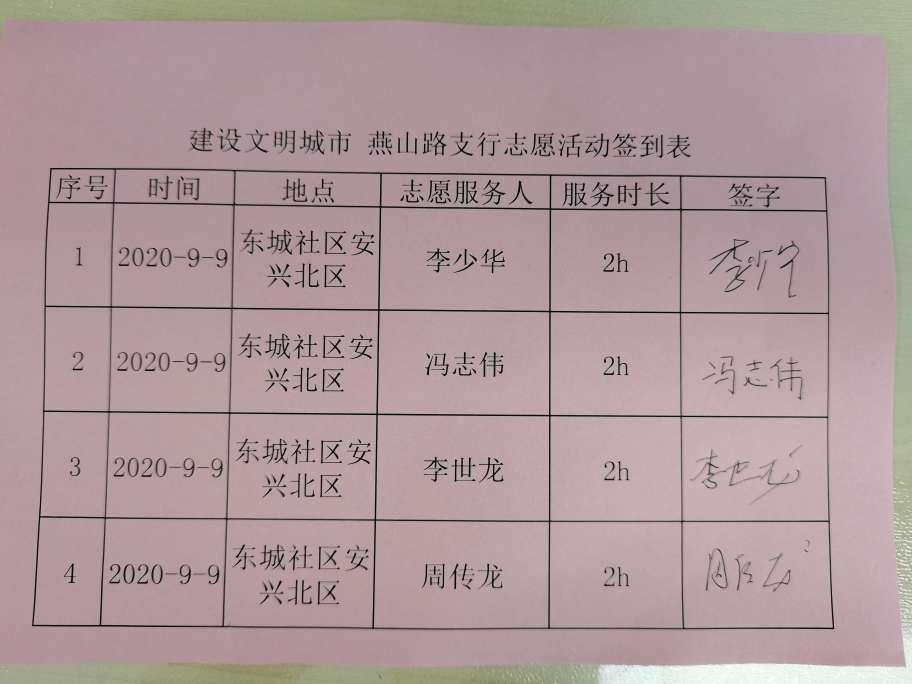 建设文明城市 燕山路支行志愿活动签到表
序号 时间 地点 志愿服务人 服务时长 签字
1 2020-9-9 东城社区安兴北区 李少华 2h 李少华
2 2020-9-9 东城社区安兴北区 冯志伟 2h 冯志伟
3 2020-9-9 东城社区安兴北区 李世龙 2h 李世龙
4 2020-9-9 东城社区安兴北区 周传龙 2h 周传龙